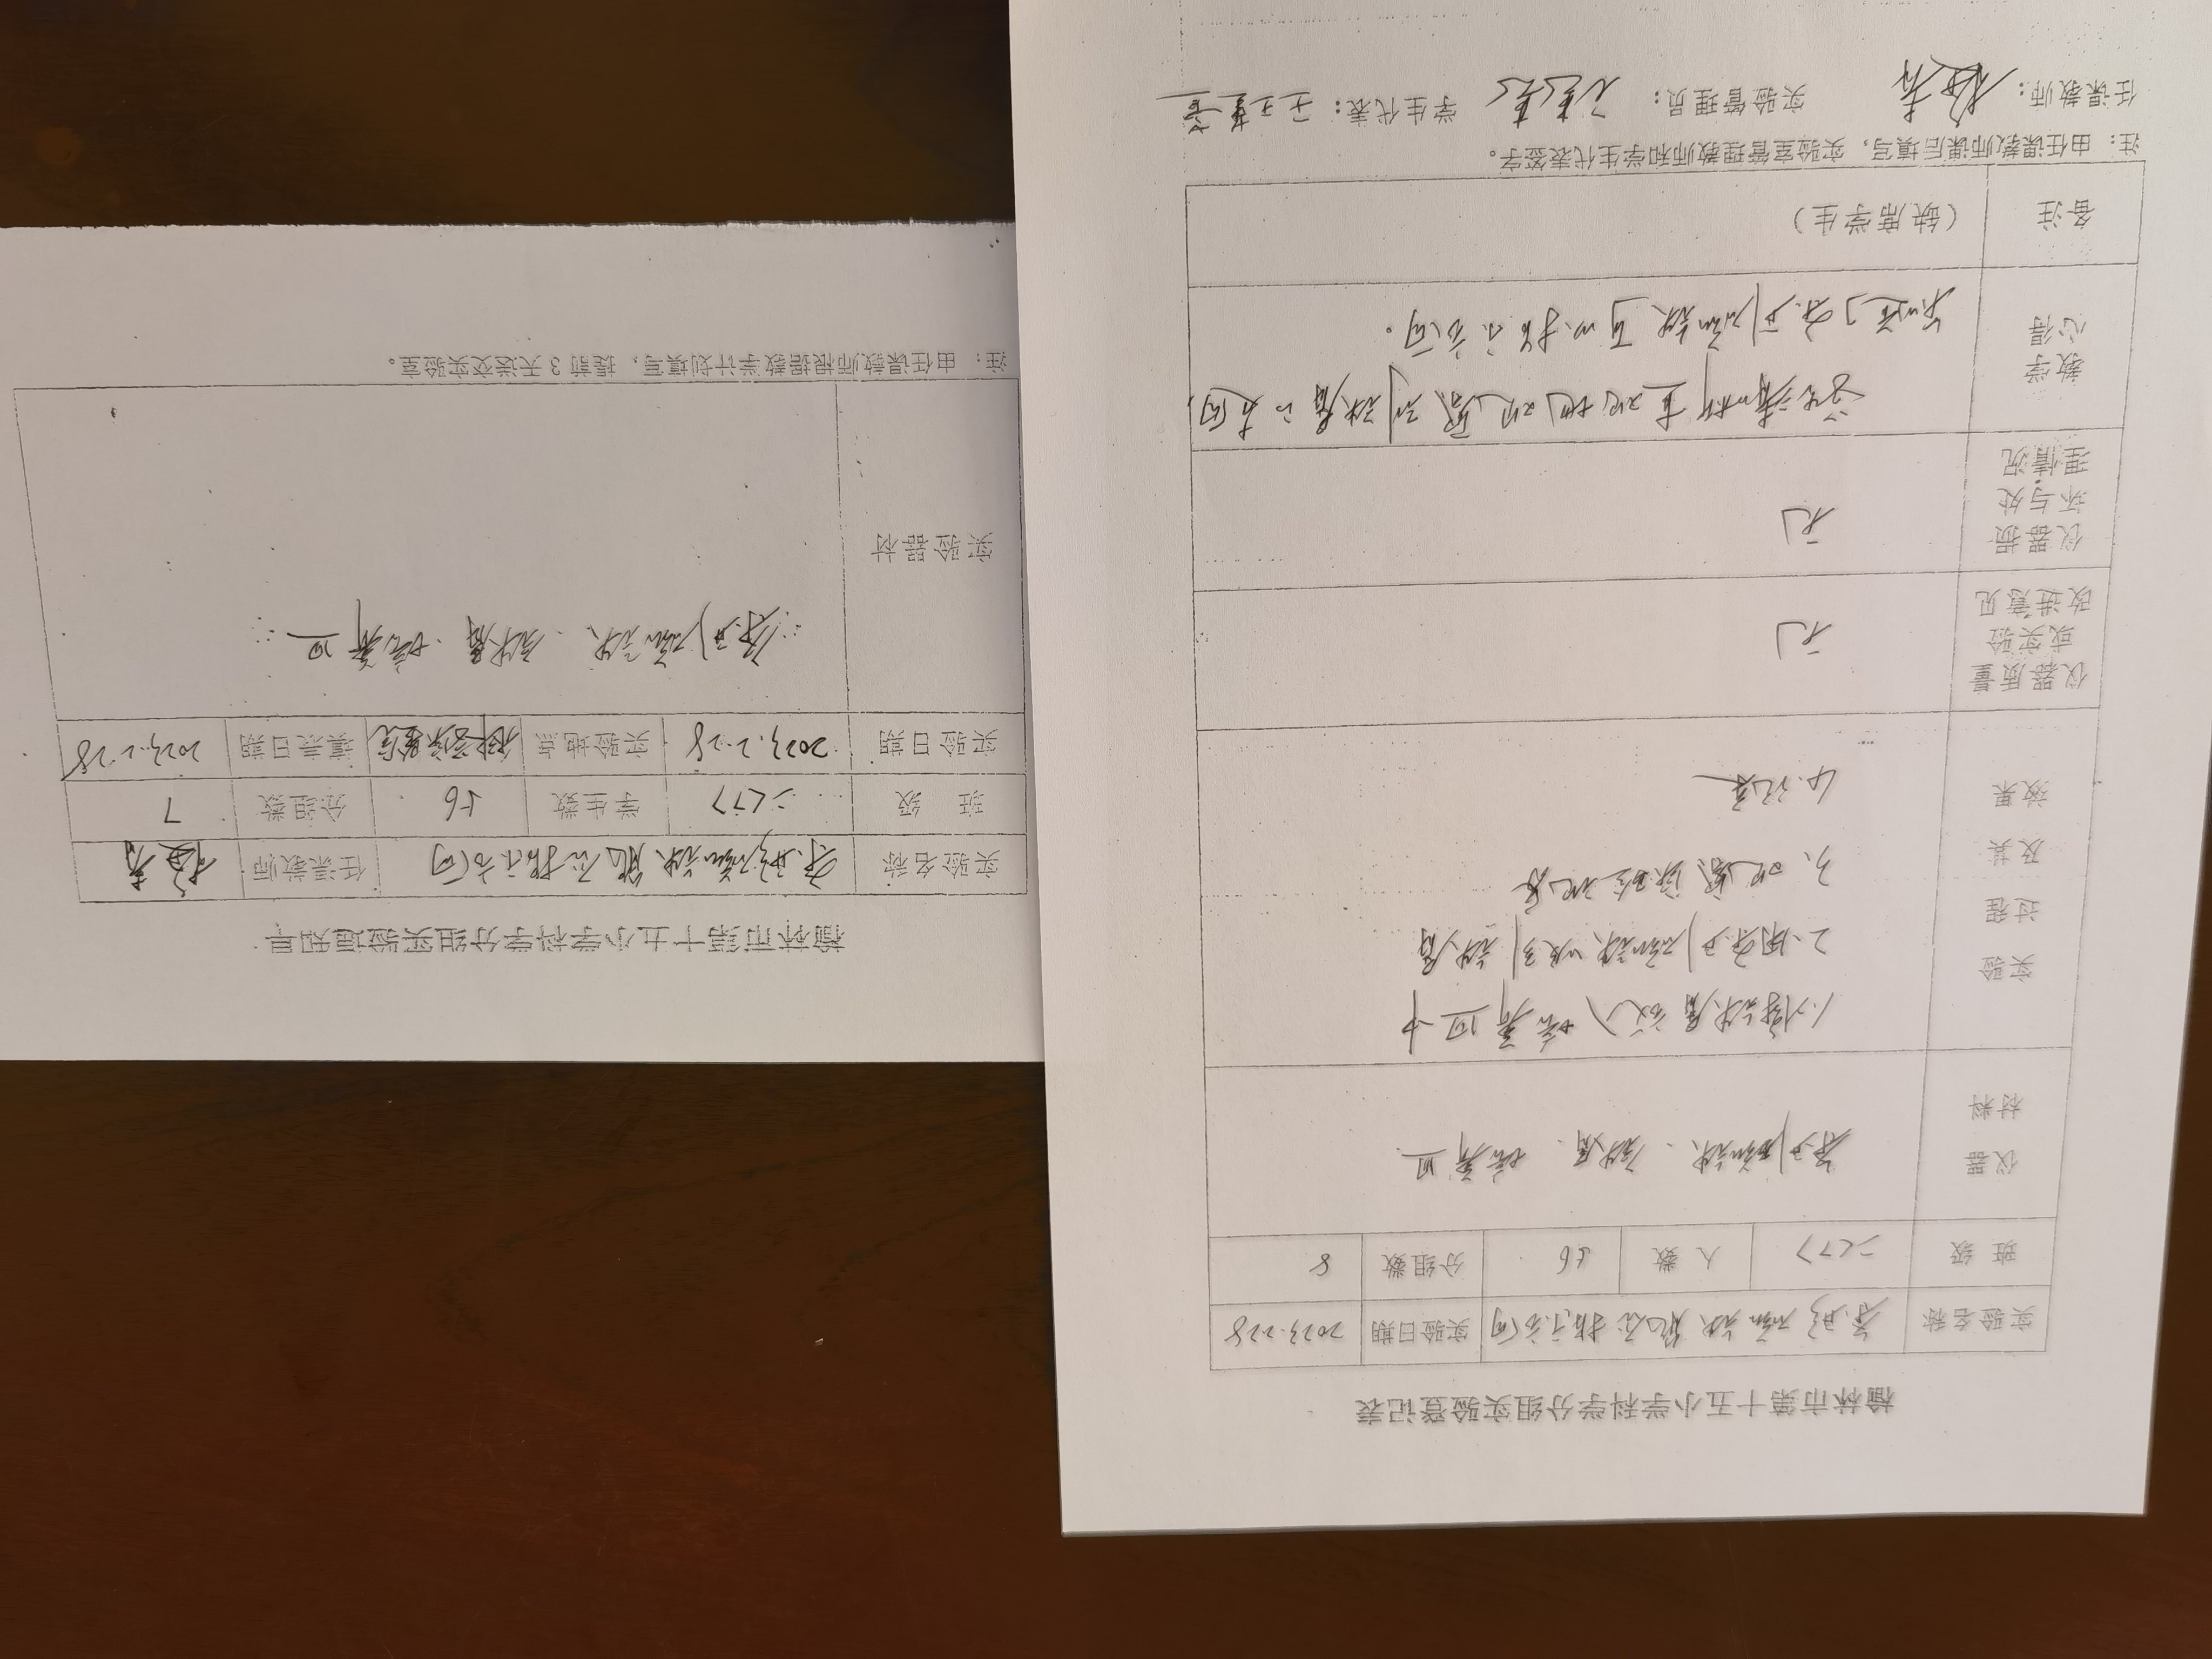 榆林市第十五小学科学分组实验登记表
实验名称 条形磁铁能否指示方向 实验日期 2023.2.28
班 级 二(7) 人 数 56 分组数 8
仪器
材料
条形磁铁、铁屑、培养皿
实验
过程
及其
效果
1.将铁屑放入培养皿中
2.用条形磁铁吸引铁屑
3.观察实验现象
4.记录
仪器质量
或实验
改进意见
无
仪器损
坏与处
理情况
无
教学
心得
学生清晰直观地观察到铁屑的方向,
条形磁铁可以指示方向。
备注 (缺席学生)
注:由任课教师课后填写,实验室管理教师和学生代表签字。
任课教师: 实验管理员: 学生代表:
榆林市第十五小学科学分组实验通知单
实验名称 条形磁铁能否指示方向 任课教师
班 级 二(7) 学生数 56 分组数 7
实验日期 2023.2.28 实验地点 科学实验室 填表日期 2023.2.28
实验器材 条形磁铁、铁屑、培养皿
注:由任课教师根据教学计划填写,提前 3 天送交实验室。